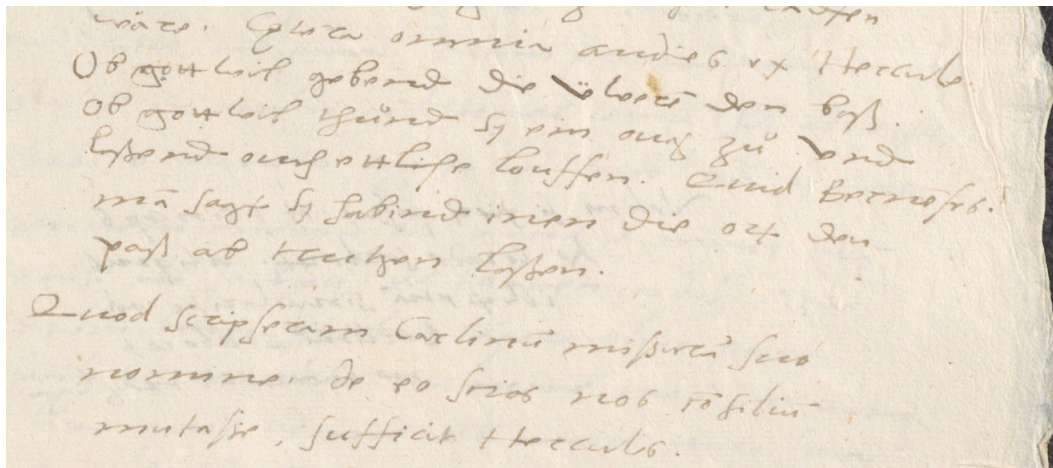 wäre. Cętera omnia audies ex Hercule.
Ob gott wil gebend die üwerē den baß.
Ob gott wil thůnd sy ein oug zů und
lassend ouch ettliche louffen. Quid Bernēses?
mā sagt sy habind inen die ort den
paß ab trutzen lassen.
Quod scripseram Carlinū missurū suo
nomine. de eo scias nos cōsiliū
mutasse, sufficit Hercules.